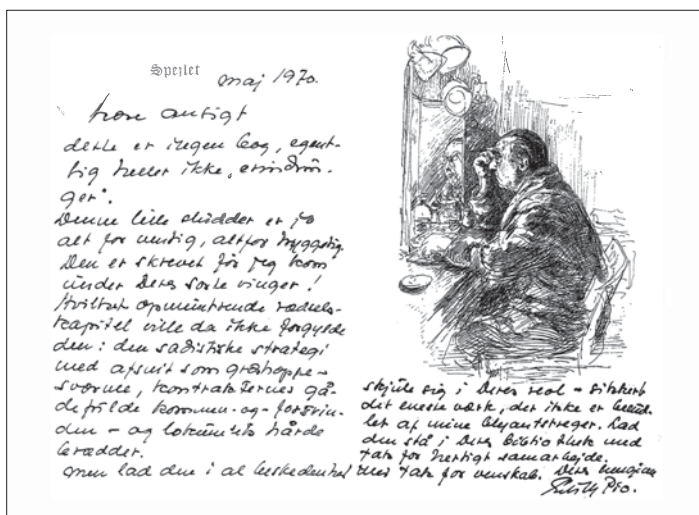 Spejlet
maj 1970.
dette er ingen bog, egent-
lig heller ikke „erindrin-
ger".
Denne lille sludder er jo
alt for venlig, altfor hyggelig.
Den er skrevet før jeg kom
under Deres sorte vinger!
Hvilket opmuntrende rædsels-
kapitel ville da ikke forgylde
den: den sadistiske strategi
med afsnit som græshoppe-
sværme, kontrakternes gå-
defulde kommen-og-forsvin-
den - og lokumets hårde
brædder.
men lad den i al beskedenhed
skjule sig i Deres reol - sikkert
det eneste værk, der ikke er
af mine blyantstreger. Lad
den stå i Deres bibliothek med
tak for hertigt samarbejde.
med tak for venskab. Deres hengivne
Pio.